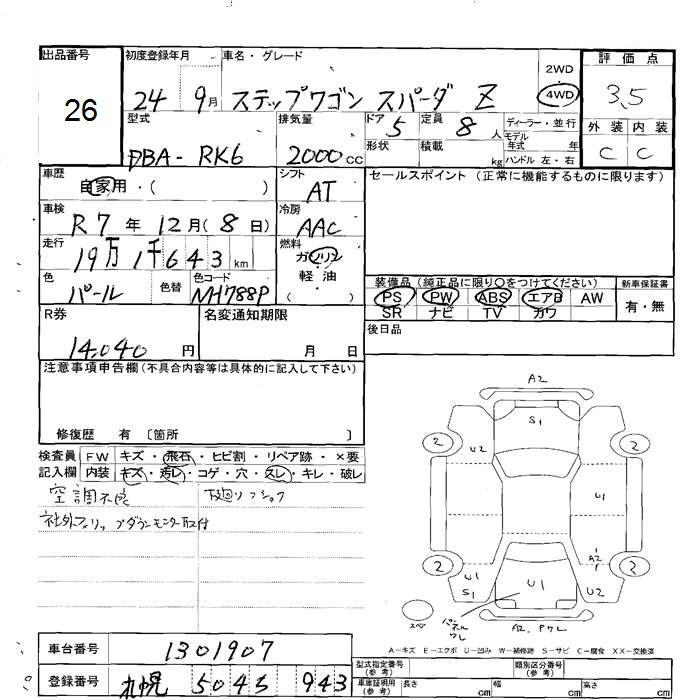 出品番号 初度登録年月 車名・グレード 2WD 評価点
26 24 9月 ステップワゴン スパーダ Z 4WD 3.5
型式 排気量 ドア 定員 ディーラー・並行 外装 内装
DBA-RK6 2000cc 5 8人 モデル年式 年 C C
形状 積載 kg ハンドル 左・右
車歴 シフト セールスポイント (正常に機能するものに限ります)
自家用・( ) AT
車検 冷房
R7年 12月(8日) AAC
走行 燃料
19万1千643km ガソリン
軽油
色 色替 色コード ( ) 装備品 (純正品に限り○をつけてください) 新車保証書
パール NH788P PS PW ABS エアB AW 有・無
SR ナビ TV カワ
R券 名変通知期限 後日品
14,040円 月 日
注意事項申告欄 (不具合内容等は具体的に記入して下さい)
修復歴 有 〔箇所 〕
検査員 FW キズ・飛石・ヒビ割・リペア跡・×要
記入欄 内装 キズ・汚レ・コゲ・穴・スレ・キレ・破レ
空調不良 下廻りフショク
社外フリップダウンモニター取付
A2
S1
2 U2 2
U1
A1
2 U1 S1 U1 U2 2
スペ パネルワレ A2, Pワレ
A-キズ E-エクボ U-凹み W-補修跡 S-サビ C-腐食 XX-交換済
車台番号 1301907
登録番号 札幌 504 943
型式指定番号 (参考) 類別区分番号 (参考)
車庫証明用 (参考) 長さ cm 幅 cm 高さ cm